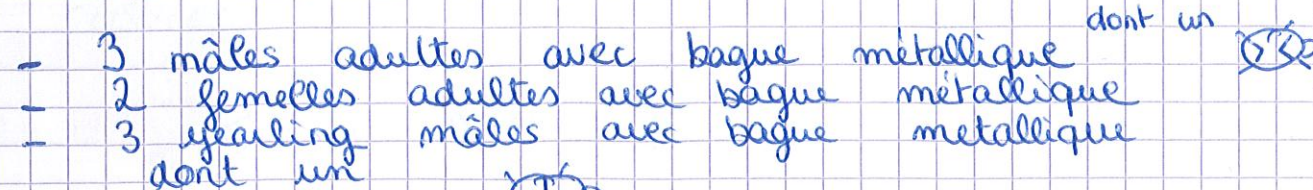 - 3 mâles adultes avec bague métallique dont un
- 2 femelles adultes avec bague métallique
- 3 yearling mâles avec bague metallique
dont un